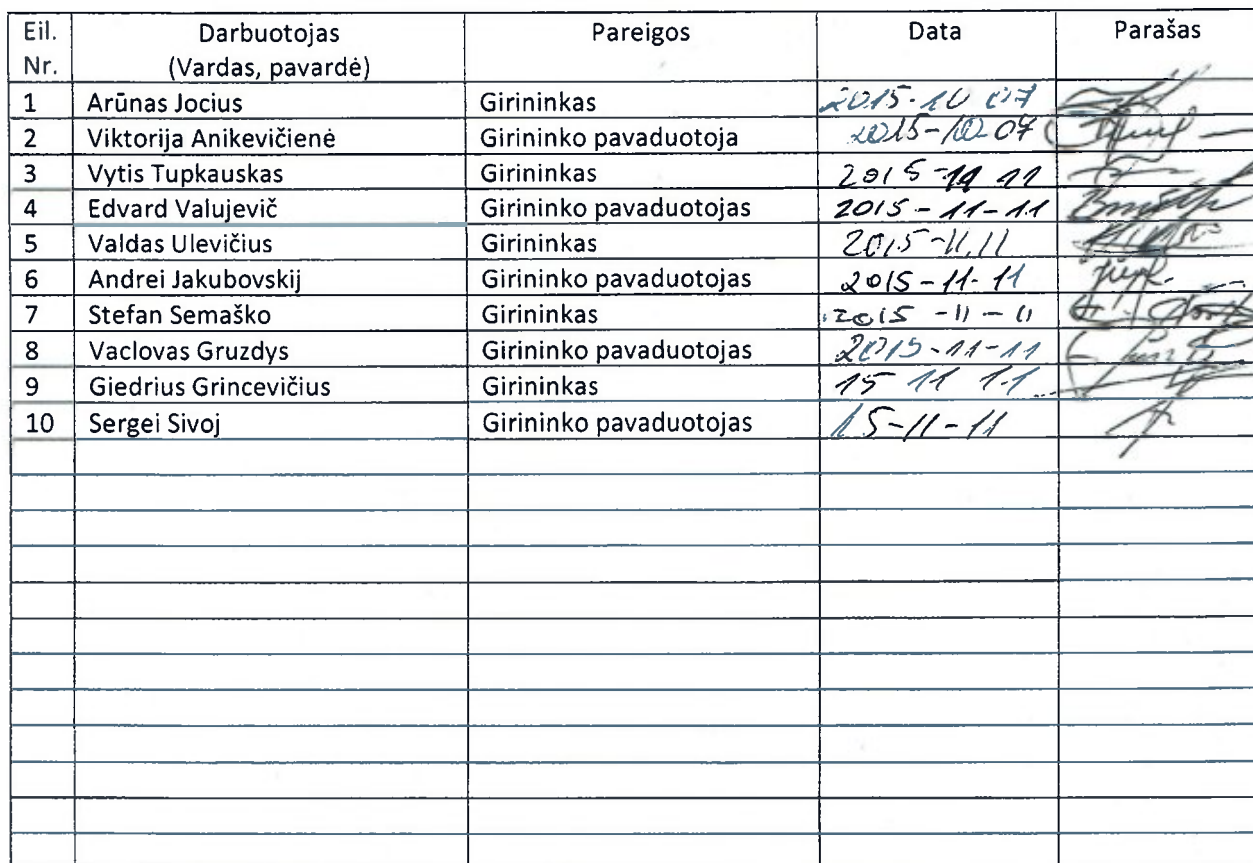 Eil. Nr. Darbuotojas (Vardas, pavardė) Pareigos Data Parašas
1 Arūnas Jocius Girininkas 2015-10 07
2 Viktorija Anikevičienė Girininko pavaduotoja 2015-10-07
3 Vytis Tupkauskas Girininkas 2015-11 11
4 Edvard Valujevič Girininko pavaduotojas 2015-11-11
5 Valdas Ulevičius Girininkas 2015-11.11
6 Andrei Jakubovskij Girininko pavaduotojas 2015-11-11
7 Stefan Semaško Girininkas 2015-11-11
8 Vaclovas Gruzdys Girininko pavaduotojas 2015-11-11
9 Giedrius Grincevičius Girininkas 15 11 11
10 Sergei Sivoj Girininko pavaduotojas 15-11-11